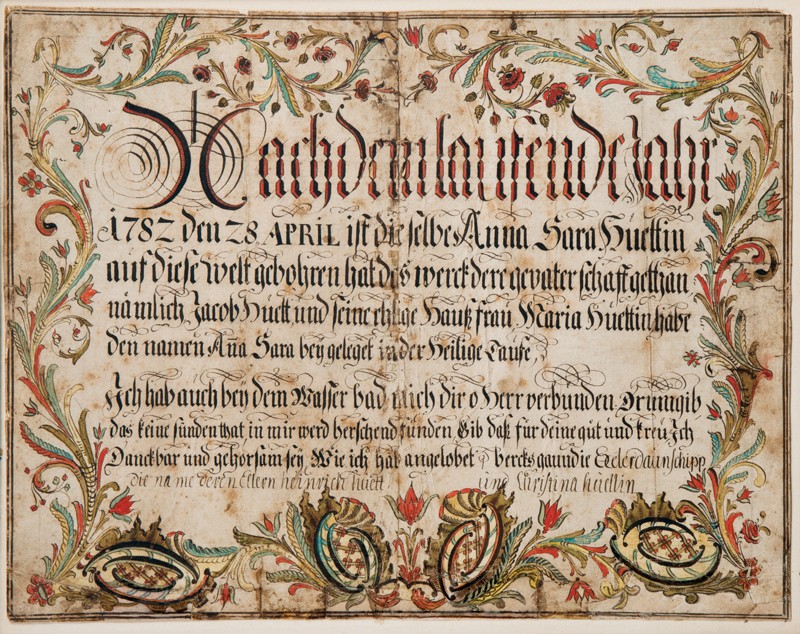 Nach dem laufende Jahr
1782 den 28 APRIL ist die selbe Anna Sara Hüettin
auf diese welt gebohren hat des werck dere gevater schafft gethan
nämlich Jacob Hüett und seine ehlige Hauß frau Maria Hüettin habe
den namen Aña Sara bey geleget in der Heilige Taufe
Ich hab auch bey dem Wasser bad mich dir o Herr verbunden Drum gib
das keine sünden that in mir werd herschend funden Gib daß für deine güt und treu Ich
Danckbar und gehorsam sey Wie ich hab angelobet bercks gaundie
die name deren elteren heinrich huett und Christina huettin